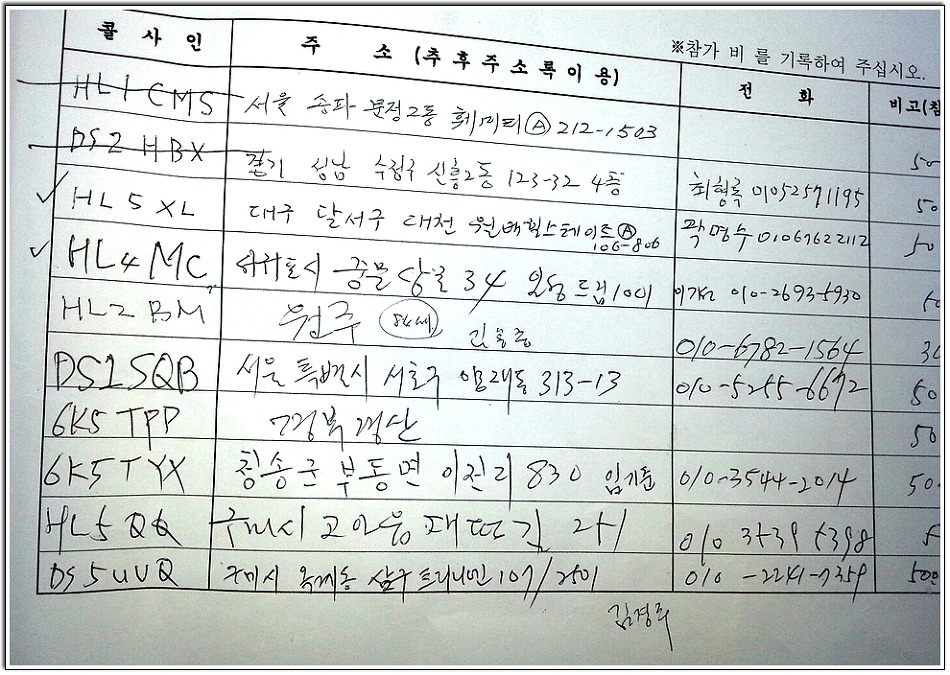 ※참가 비 를 기록하여 주십시오.
콜 사 인 주 소 (추후주소록이용) 전 화 비고(참
HL1 CMS 서울 송파 문정2동 훼미리Ⓐ 212-1503
DS2 HBX 경기 성남 수정구 신흥2동 123-32 4층 최형록 01052571195 50
HL5XL 대구 달서구 대천 월배힐스테이트Ⓐ 106-806 곽명수 01067622112 50
HL4MC 서귀포시 중문상로 34 1001 010-2693-5930
HL2BM 원주 84세 010-6782-1564 30
DS1SQB 서울특별시 서초구 양재동 313-13 010-5255-6672 50
6K5TPP 경북경산 50
6K5TYX 청송군 부동면 이전리 830 임기준 010-3544-2014 50
HL5QQ 구미시 고아읍 2-1 010
DS5UVQ 구미시 옥계동 삼구트리니엔 107/2501 010-2241-7359 500